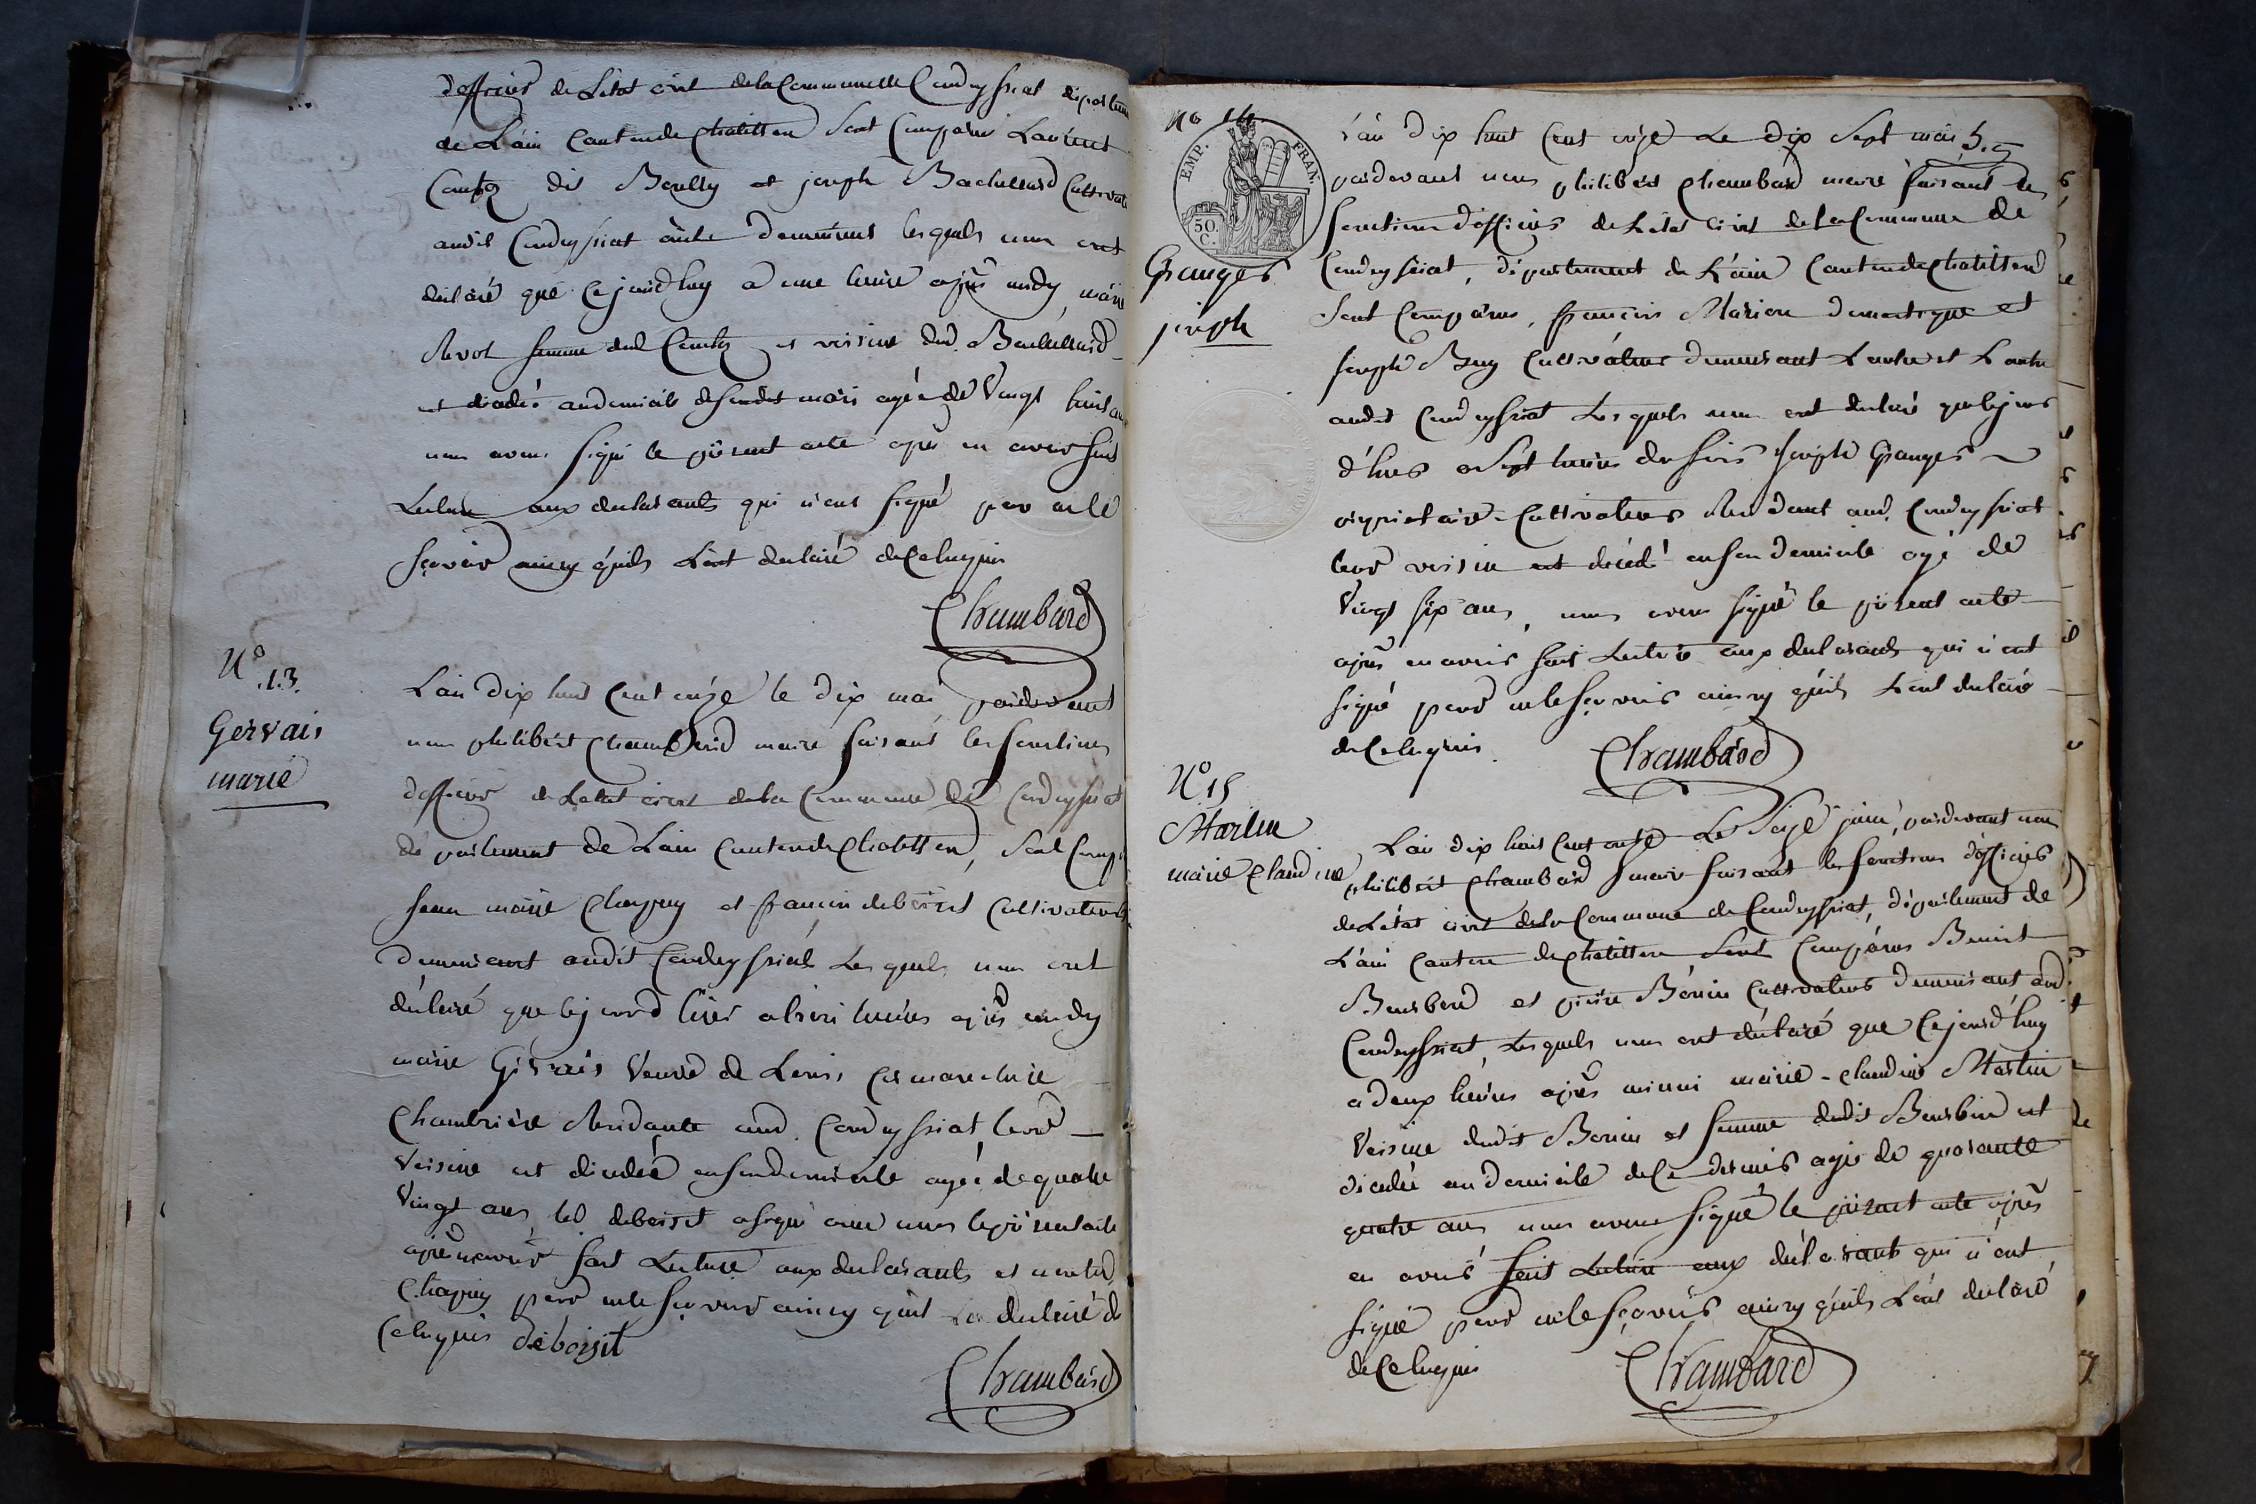 d'officier de L'état civil de la Commune de Condeyssiat départem
de L'ain Canton de Chatillon Sont Comparus Laurent
dit Boully et joseph Bachellard Cultivat
audit Condeyssiat demeurant lesquels nous ont
déclaré que Cejourdhuy a une heure après midy marie
Revol femme dud. et voisine dud. Bachellard
est décédée au domicile desondit mari agée de Vingt huit ans
nous avons signé le présent acte après en avoir fait
Lecture aux declarants qui n'ont signé pour ne le
sçavoir ainsy quils L'ont declaré de Ce enquis
Chambard
N°
13.
Gervais
marie
L'an dix huit Cent onze le dix mai pardevant
nous philibert Chambard maire faisant les fonctions
d'officier de L'etat civil de la Commune de Condeyssiat
département de L'ain Canton de Chatillon, Sont Comp
Jean marie Chapuy et francois deboisset Cultivateurs
demeurant audit Condeyssiat Lesquels nous ont
déclaré que Cejourd'hui a trois heures après midy
marie Gervais Veuve de Louis
Chambrière Residante aud. Condeyssiat leur
Voisine est décédée en son domicile agée de quatre
Vingt ans led. deboisset a signé avec nous le présent acte
après en avoir fait Lecture aux declarants et non led.
Chapuy pour ne le sçavoir ainsy qu'il L'a declaré de
Ce enquis deboisset
Chambard
No 14.
EMP. FRAN.
50.
C.
Granges
joseph
L'an dix huit Cent onze Le dix Sept mai
pardevant nous philibert Chambard maire faisant les
fonctions d'officier de L'état Civil de la Commune de
Condeyssiat, département de L'ain Canton de Chatillon
Sont Comparus, françois Marion domestique et
joseph Buy Cultivateur demeurant L'un et L'autre
audit Condeyssiat Lesquels nous ont declaré que Cejour
d'hui a Sept heures du soir Joseph Granges
propriétaire Cultivateur Residant aud. Condeyssiat
leur voisin est décédé en son domicile agé de
Vingt six ans, nous avons signé le présent acte
après en avoir fait Lecture aux declarants qui n'ont
signé pour ne le sçavoir ainsy quils L'ont declaré
de Ce enquis.
Chambard
N° 15
Martin
marie Claudine
L'an dix huit Cent onze Le Seize juin, pardevant nous
philibert Chambard maire faisant les fonctions d'officier
de L'état civil de la Commune de Condeyssiat, département de
L'ain Canton de Chatillon Sont Comparus Benoit
et pierre Bonin Cultivateurs demeurant aud.
Condeyssiat, Lesquels nous ont déclaré que Cejourd'huy
a deux heures après minui marie Claudine Martin
Voisine dudit Bonin et femme dudit est
décédée au domicile de Ce dernier agée de quarante
quatre ans nous avons signé le présent acte après
en avoir fait Lecture aux déclarants qui n'ont
signé pour ne le sçavoir ainsy quils L'ont declaré
de Ce enquis
Chambard